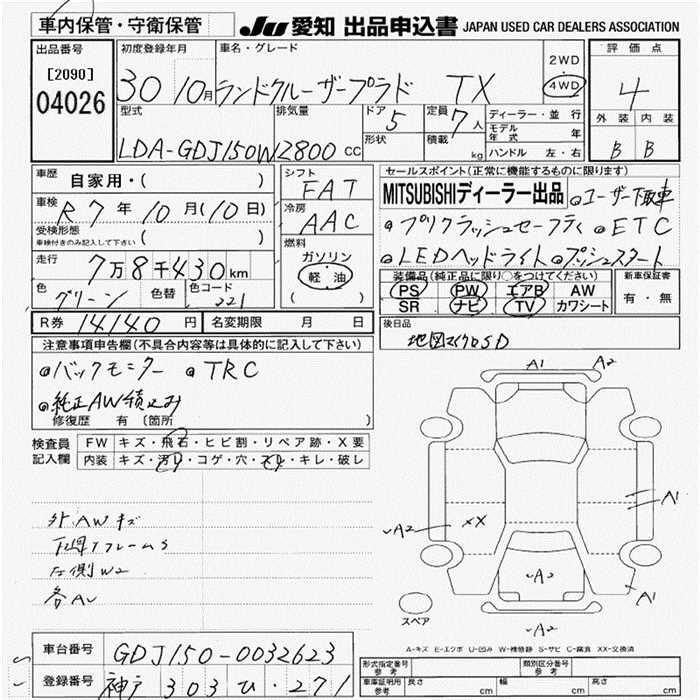 車内保管・守衛保管 JU 愛知 出品申込書 JAPAN USED CAR DEALERS ASSOCIATION
出品番号 初度登録年月 車名・グレード 評価点
[2090] 30 10月 ランドクルーザープラド TX 2WD 4WD 4
04026
型式 排気量 ドア 5 定員 7人 ディーラー・並行 外装 内装
モデル年式 年
LDA-GDJ150W 2800cc 形状 積載 kg ハンドル 左・右 B B
車歴 自家用・( ) シフト FAT セールスポイント(正常に機能するものに限ります)
MITSUBISHIディーラー出品 ユーザー下取車
車検 R7年10月(10日) 冷房 AAC
プリクラッシュセーフティ ETC
受検形態 ( )
車検付きのみ記入して下さい
燃料 ガソリン
LEDヘッドライト プッシュスタート
走行 7万8千430km 軽油
装備品(純正品に限り○をつけてください) 新車保証書
色 グリーン 色替 色コード 221 ( )
PS PW エアB AW 有・無
SR ナビ TV カワシート
R券 14140円 名変期限 月 日
後日品
地図マイクロSD
注意事項申告欄(不具合内容等は具体的に記入して下さい)
バックモニター TRC
純正AW積込み
修復歴 有 〔箇所 〕
A1 A2
検査員 FW キズ・飛石・ヒビ割・リペア跡・X要
記入欄 内装 キズ・汚れ・コゲ・穴・スレ・キレ・破レ
A1
外AWキズ
A2 XX
下廻りフレームS
左側W2
A2
各AU
A1
スペア
A2
A-キズ E-エクボ U-凹み W-補修跡 S-サビ C-腐食 XX-交換済
車台番号 GDJ150-0032623
登録番号 神戸 303 ひ・271
形式指定番号 参考 類別区分番号 参考
車庫証明用 参考 長さ cm 幅 cm 高さ cm